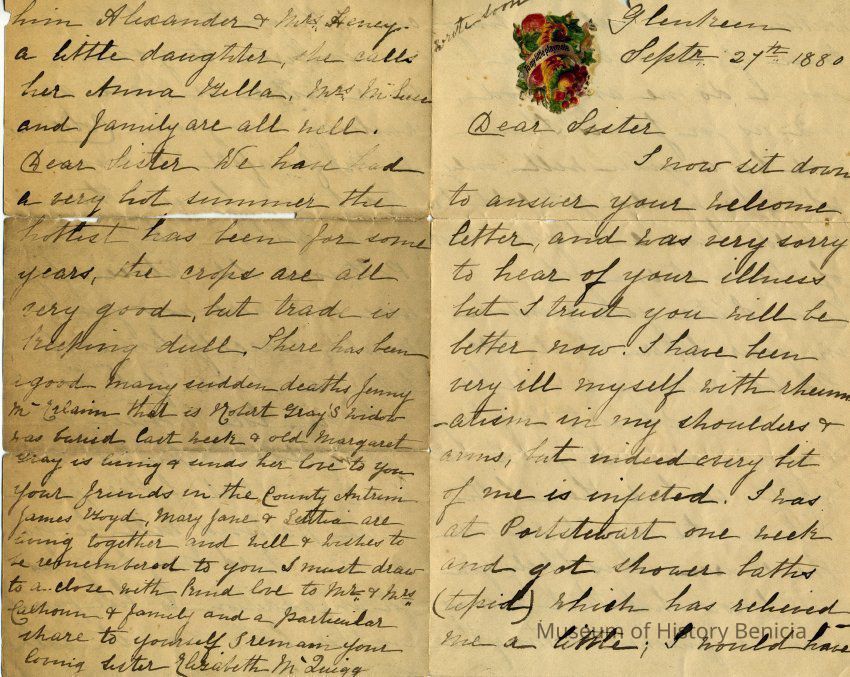 wrote soon
Glenkeen
Septr. 27th 1880
Dear Sister
I now sit down
to answer your welcome
letter, and was very sorry
to hear of your illness
but I trust you will be
better now. I have been
very ill myself with rheum
-atism in my shoulders &
arms, but indeed every bit
of me is infected. I was
at Portstewart one week
and got shower baths
(tepid) which has relieved
me a little; I would have
him Alexander & Mrs. Heney.
a little daughter, she calls
her Anna Bella. Mrs.
and family are all well.
Dear Sister We have had
a very hot summer the
hottest has been for some
years, the crops are all
very good, but trade is
keeping dull. There has been
a good many sudden deaths Jenny
that is Robert Gray's widow
was buried last week & old Margaret
Gray is living & sends her love to you
your friends in the County Antrim
James Boyd, Mary Jane & Letitia are
living together and well & wishes to
be remembered to you I must draw
to a close with kind love to Mr. & Mrs.
Calhoun & family and a particular
share to yourself I remain your
loving sister Elizabeth McQuigg
Museum of History Benicia